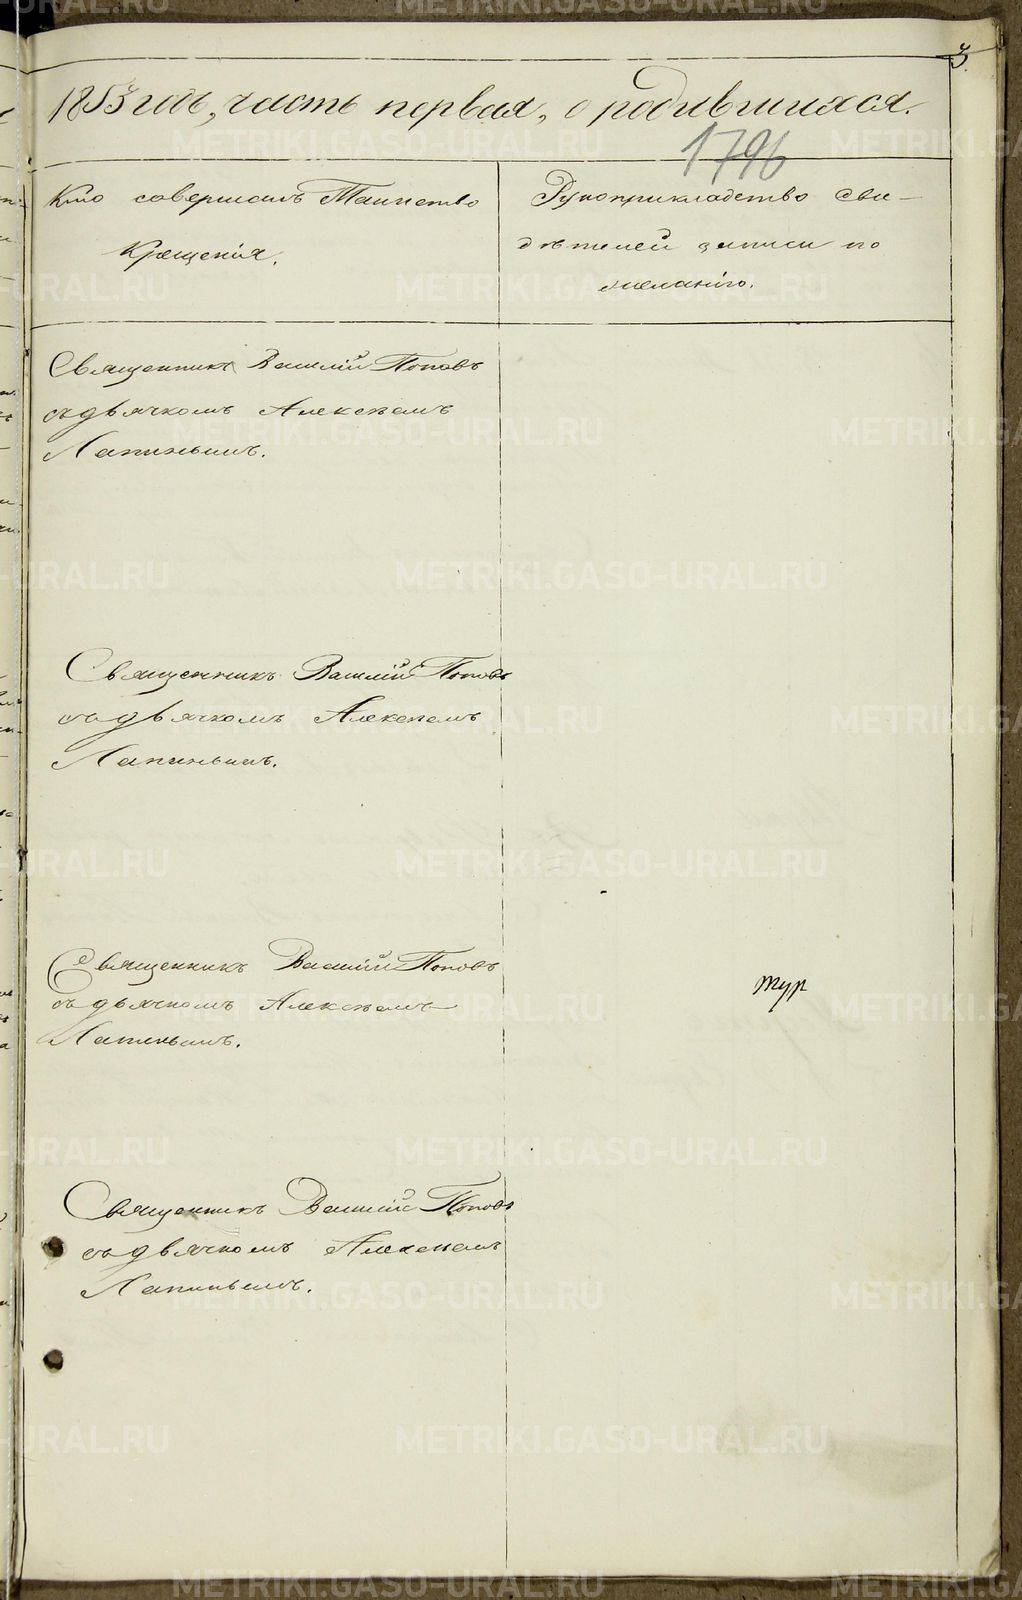 3.
1853 годъ, часть первая, о родившихся.
1796
Кто совершалъ Таинство
Крещенія.
Рукоприкладство сви-
дѣтелей записи по
желанію.
Священникъ Василій Поповъ
съ дьячкомъ Алексѣемъ
Лапинымъ.
Священникъ Василій Поповъ
съ дьячкомъ Алексѣемъ
Лапинымъ.
Священникъ Василій Поповъ
съ дьячкомъ Алексѣемъ
Лапинымъ.
тур
Священникъ Василій Поповъ
съ дьячкомъ Алексѣемъ
Лапинымъ.
METRIKI.GASO-URAL.RU